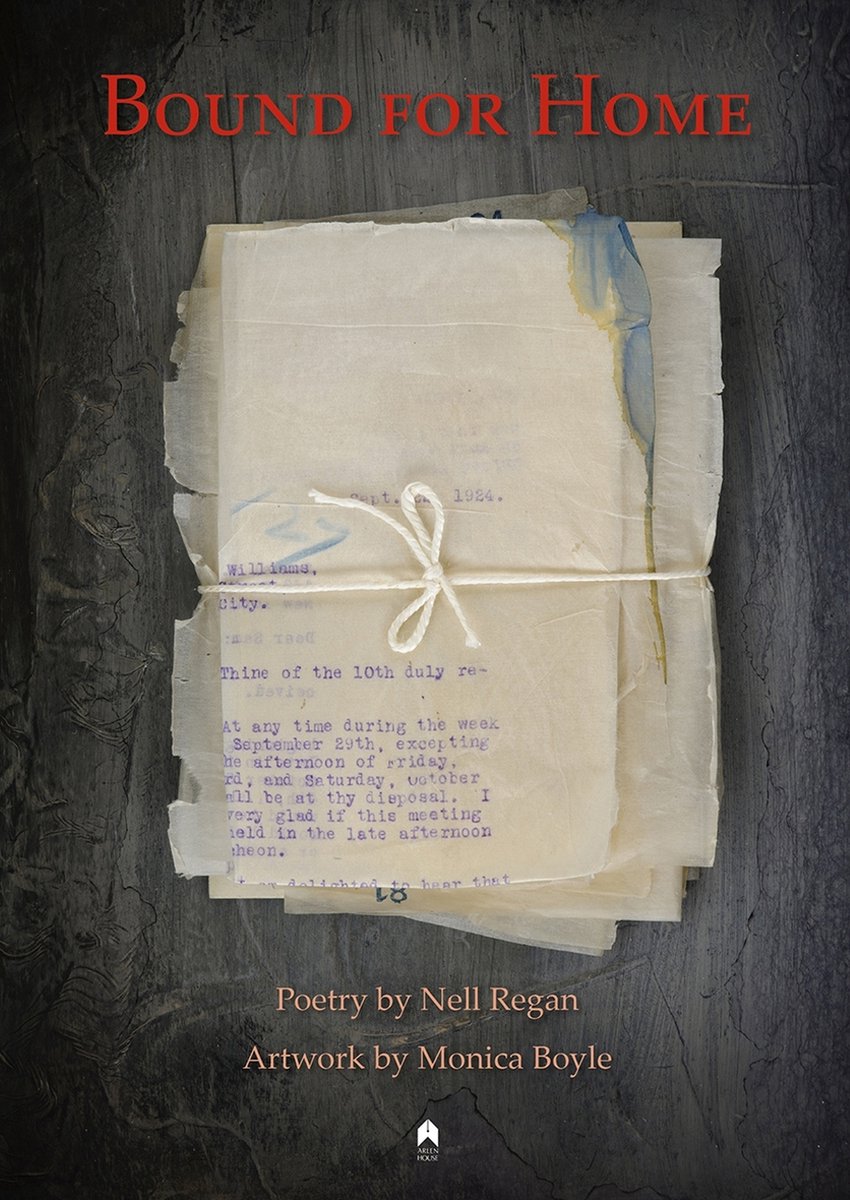 BOUND FOR HOME
Sept. 1924.
Williams,
City.
Thine of the 10th duly re-
At any time during the week
September 29th, excepting
he afternoon of Friday,
rd, and Saturday, October
all be at thy disposal. I
very glad if this meeting
held in the late afternoon
cheon.
delighted to hear that
81
Poetry by Nell Regan
Artwork by Monica Boyle
ARLEN
HOUSE